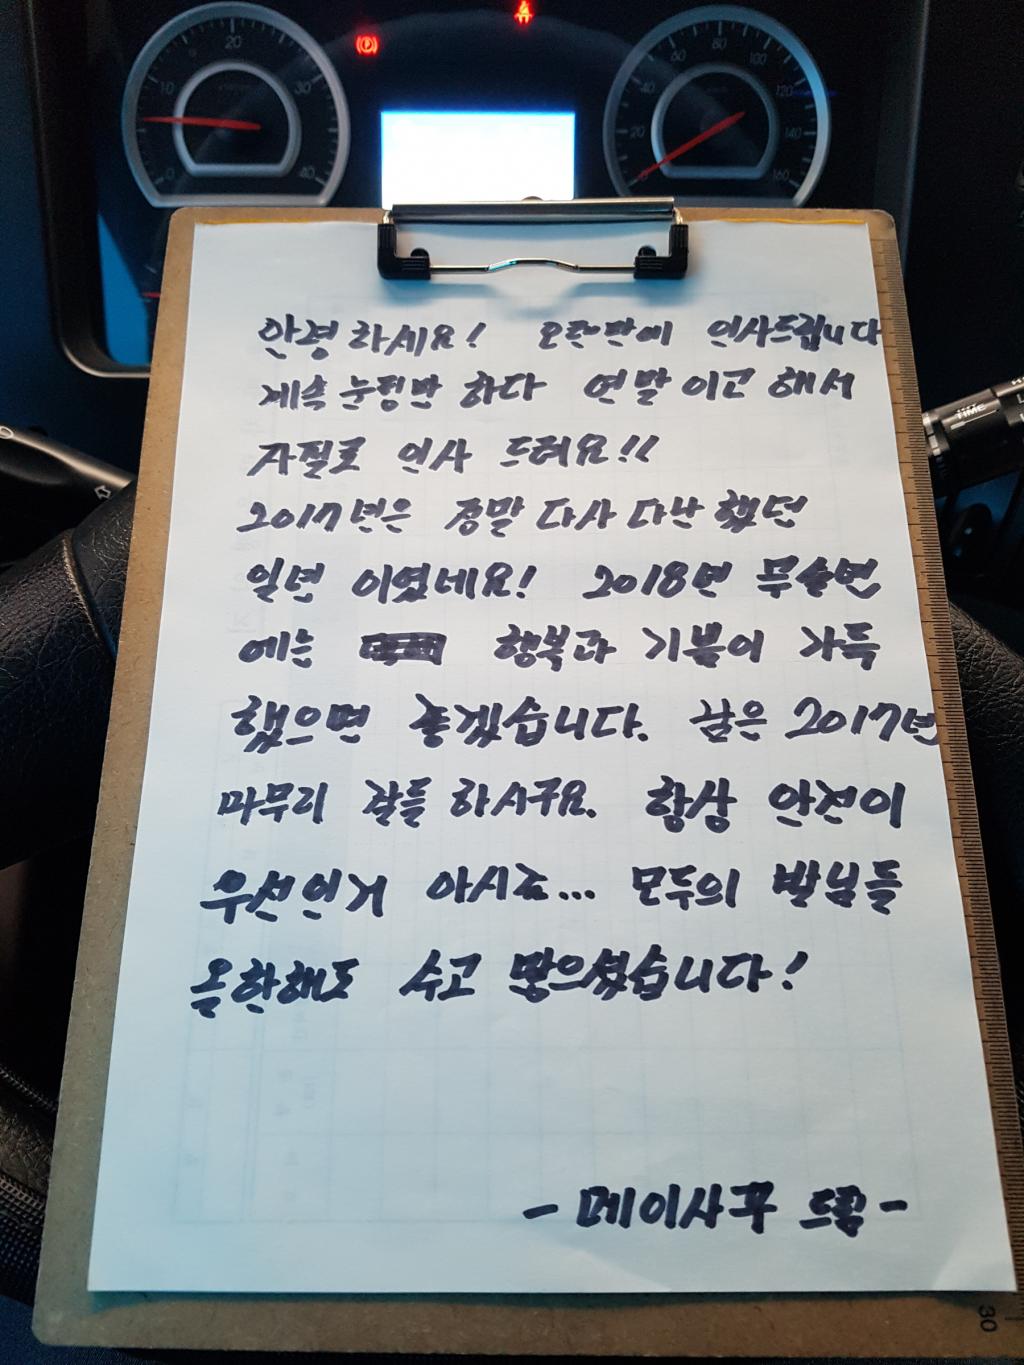 20
10
30
0
40
(P)
80
60
100
40
120
20
140
0
160
안녕하세요! 오랜만에 인사드립니다
계속 눈팅만 하다 연말이고 해서
자필로 인사 드려요!!
2017년은 정말 다사다난 했던
일년 이였네요! 2018년 무술년
에는 행복과 기쁨이 가득
했으면 좋겠습니다. 남은 2017년
마무리 잘들 하시구요. 항상 안전이
우선인거 아시죠... 모두의 발님들
올한해도 수고 많으셨습니다!
- 메이사꾸 드림 -
TIME
30